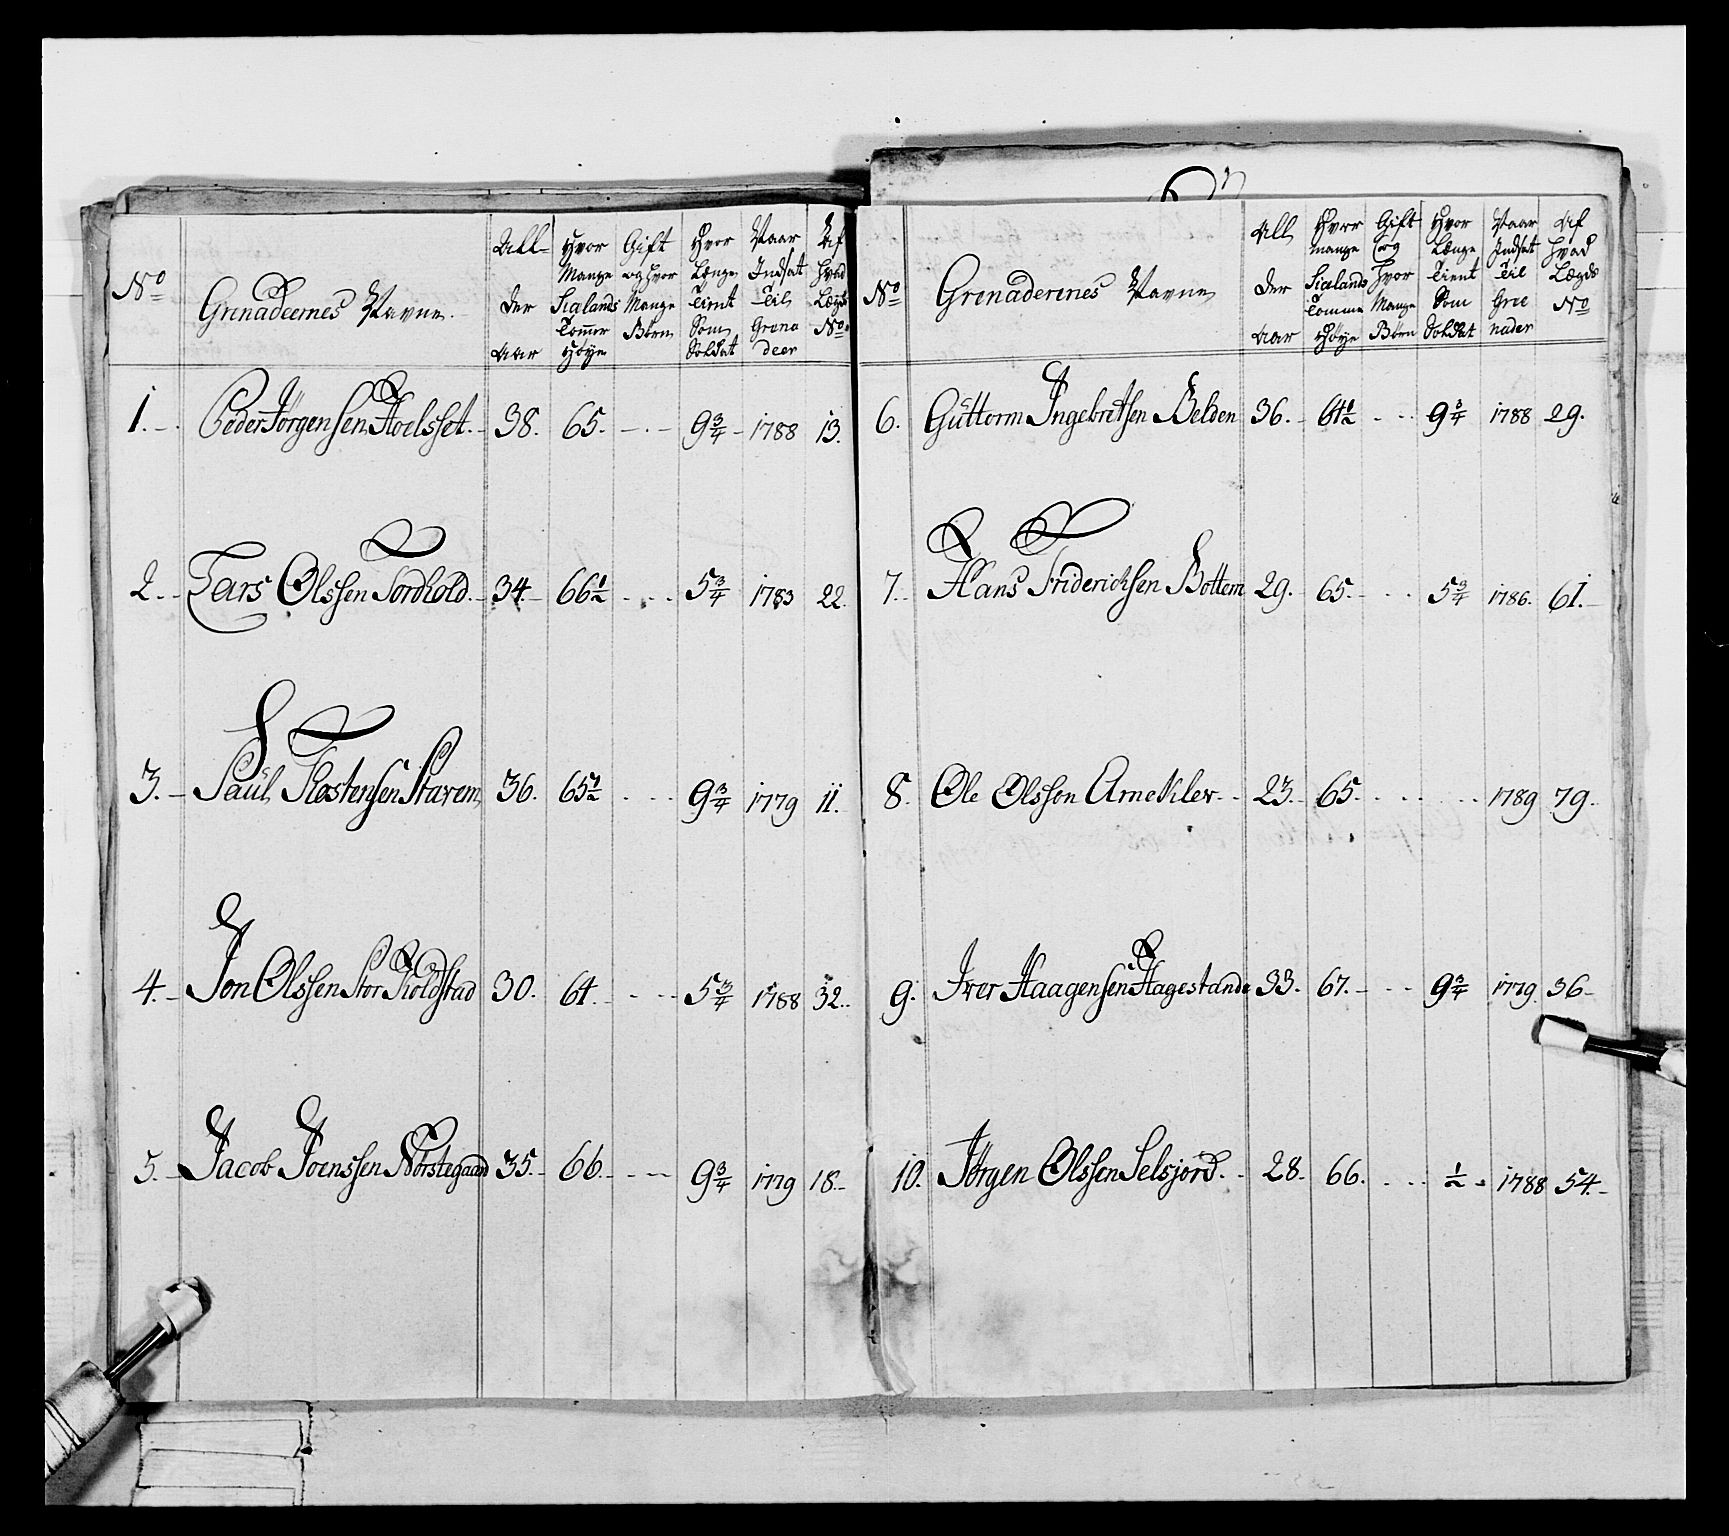 No
Grenadeernes Navne.
All-
der
aar
Hvor
Mange
Siælands
Tomer
Høye
Gift
og hvor
Mange
Børn
Hvor
Længe
Tient
Som
Soldat
Naar
Indsat
Til
Grena
deer
Af
hvad
Lægds
No.
1. Peder Jörgensen Hoelsset. 38. 65. - - 9 3/4 - 1788 13.
2. Lars Olssen Tordhold. 34 66 1/2 . . . 5 3/4 1783 22.
3. Paul Tostensen Starem 36. 65 1/2 . . . 9 3/4 1779 11.
4. Jon Olssen Stor Koldstad 30. 64. - - - 5 3/4 1788 32.
5. Jacob Joenssen Norstegaard 35. 66. - - - 9 3/4 1779 18.
No
Grenaderenes Navne
All
der
aar
Hvor
mange
Siælands
Tomme
Høye
Gift
og
Hvor
Mange
Børn
Hvor
Længe
Tient
Som
Soldat
Naar
Indsat
Til
Gre
nader
Af
hvad
Lægds
No
6. Guttorm Ingebretsen Belden 36. 64 1/2 - - 9 3/4 1788 29.
7. Hans Friderichsen Bottem 29. 65. - . . 5 3/4 1786. 61.
8. Ole Olsson Arnekler. 23. 65. . . . . . 1789 79.
9. Iver Haagensen Hagestande 33. 67. - - - 9 3/4 1779 36
10. Jörgen Olssen Selsjord. 28. 66. . . . 1/2 - 1788 54.